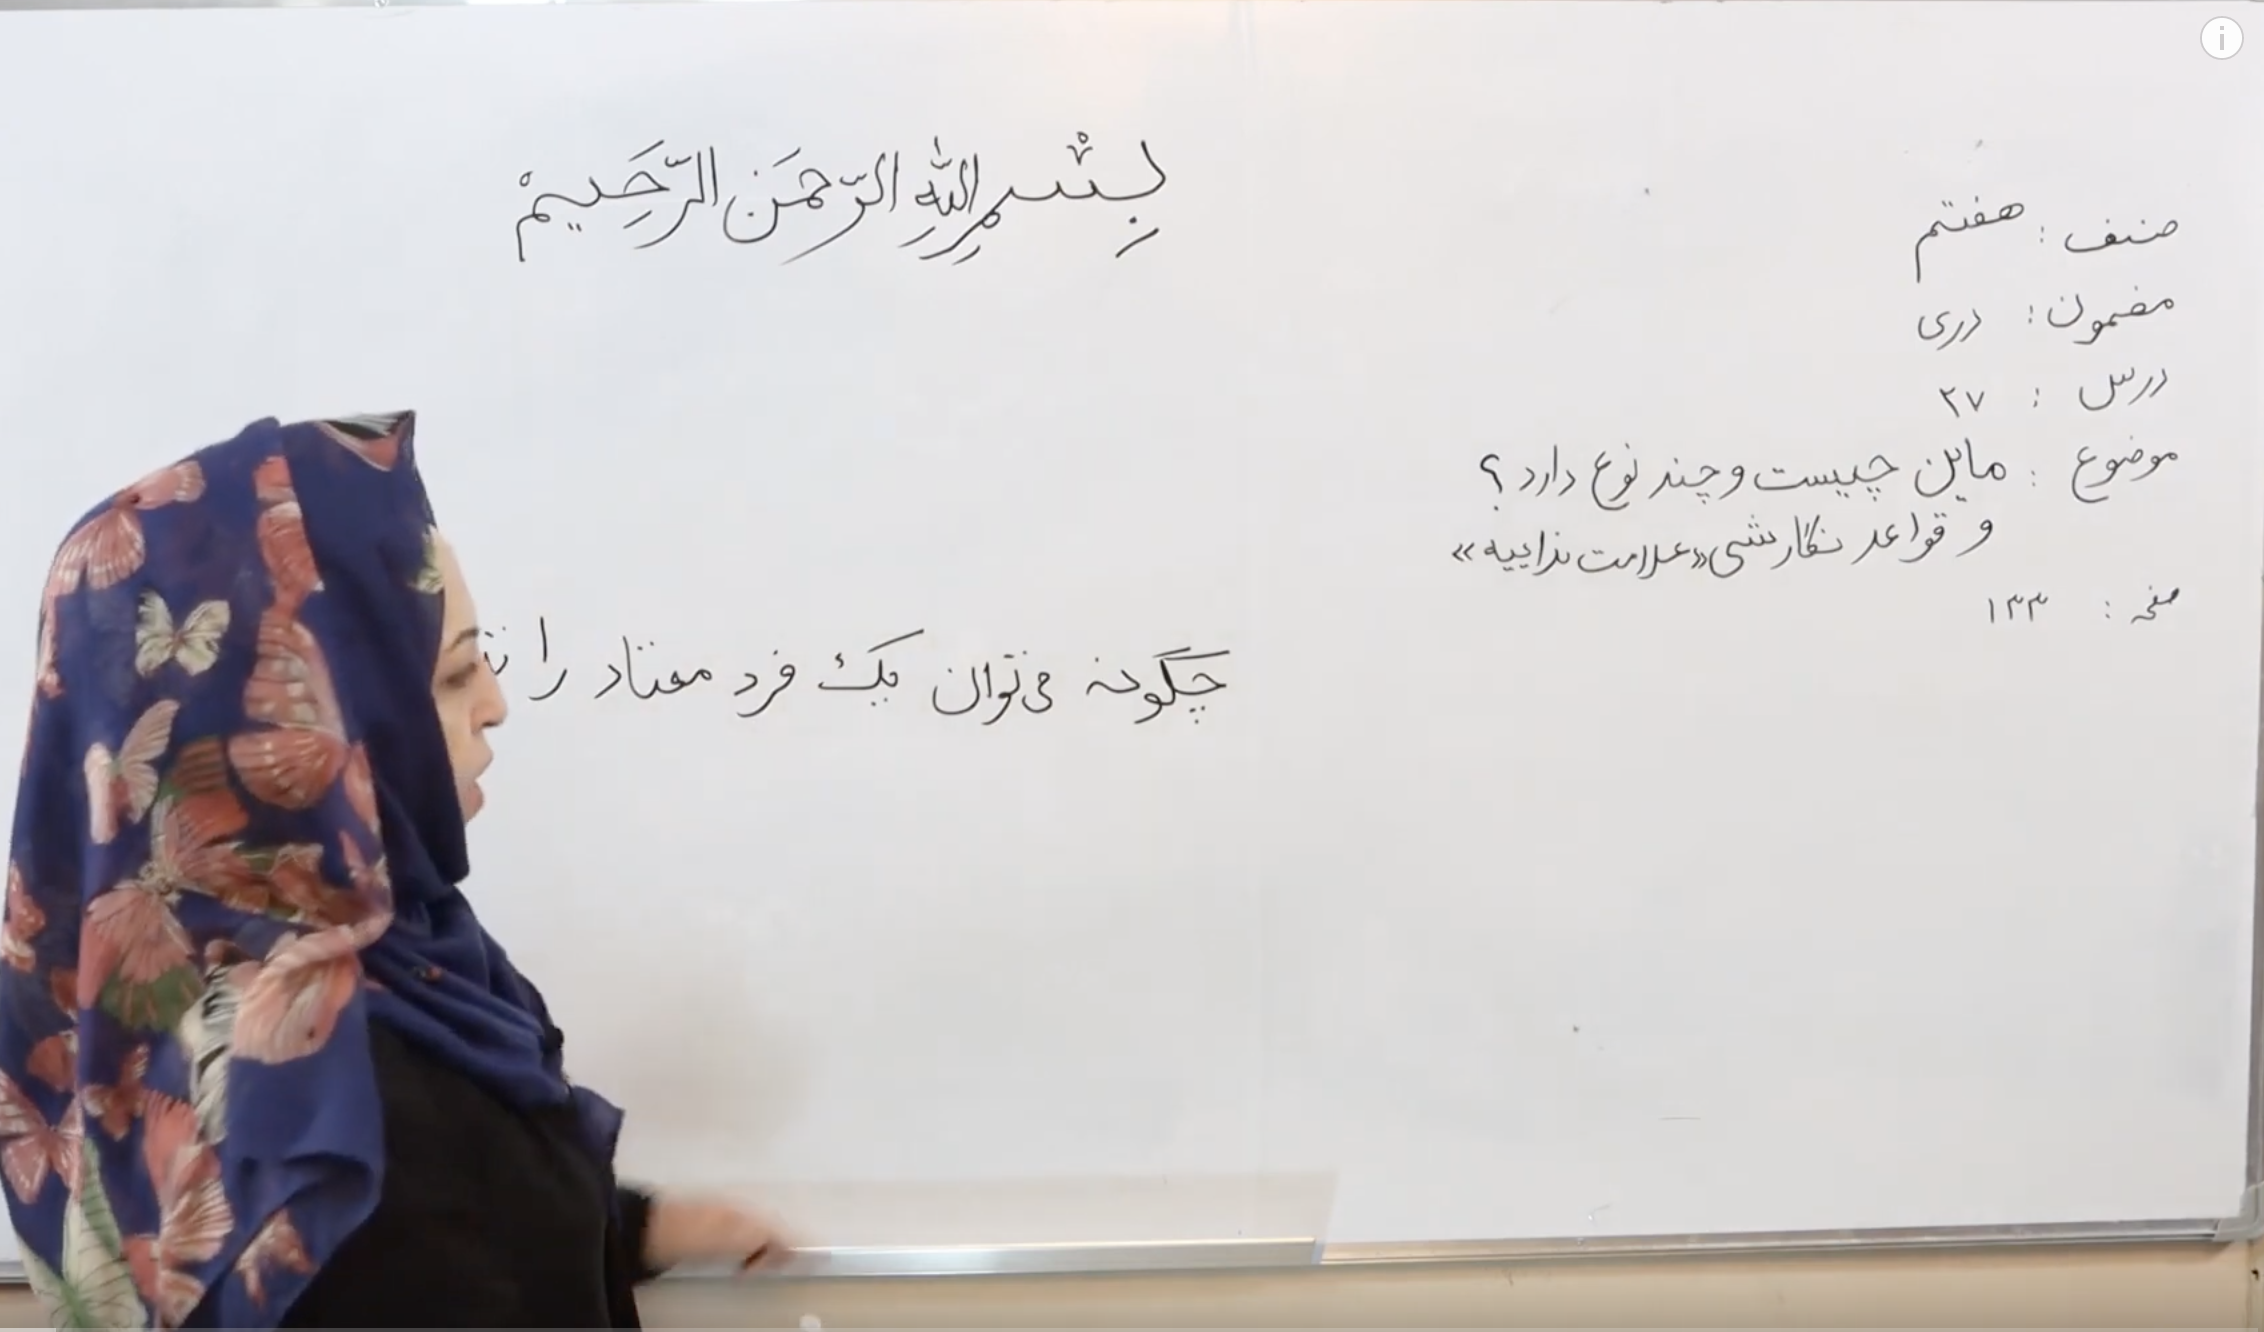 بِسْمِ اللهِ الرَّحمَنِ الرَّحِیمْ
صنف : هفتم
مضمون : دری
درس : ۲۷
موضوع : ماین چیست و چند نوع دارد ؟
و قواعد نگارشی «علامت نداییه»
صفحه : ۱۳۳
چگونه می‌توان یک فرد معتاد را